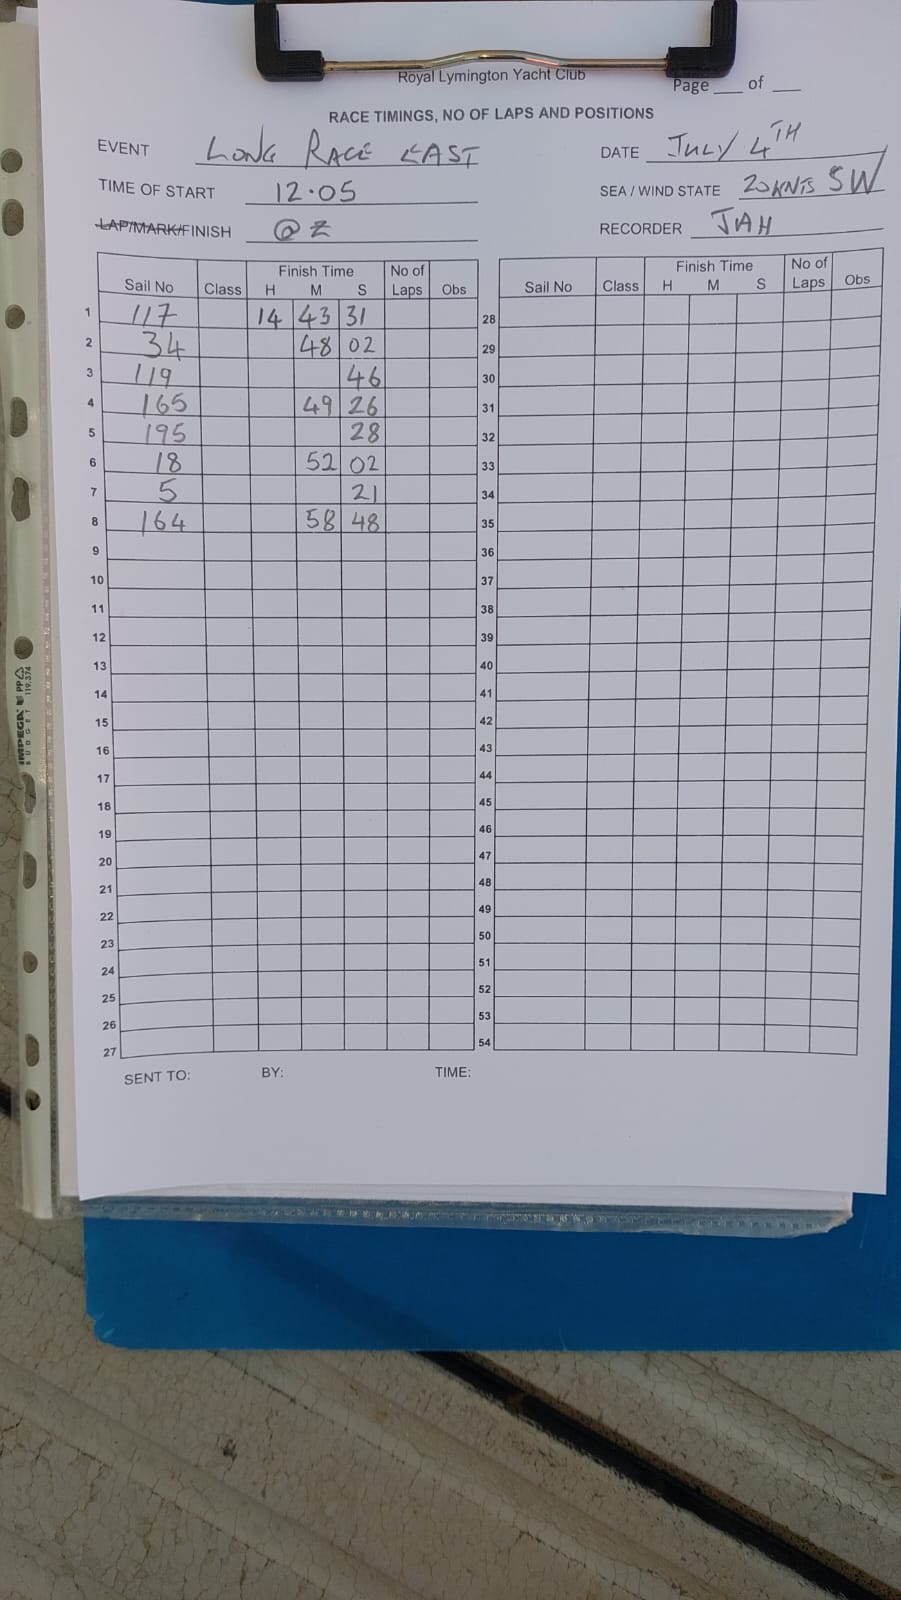 Royal Lymington Yacht Club
Page ___ of ___
RACE TIMINGS, NO OF LAPS AND POSITIONS
EVENT LONG RACE EAST DATE JULY 4TH
TIME OF START 12.05 SEA / WIND STATE 20KNTS SW
LAP/MARK/FINISH @ Z RECORDER JAH
Sail No Class Finish Time H M S No of Laps Obs Sail No Class Finish Time H M S No of Laps Obs
1 117 14 43 31 28
2 34 48 02 29
3 119 46 30
4 165 49 26 31
5 195 28 32
6 18 52 02 33
7 5 21 34
8 164 58 48 35
9 36
10 37
11 38
12 39
13 40
14 41
15 42
16 43
17 44
18 45
19 46
20 47
21 48
22 49
23 50
24 51
25 52
26 53
27 54
SENT TO: BY: TIME:
IMPEGA PP
BUDGET 119.374